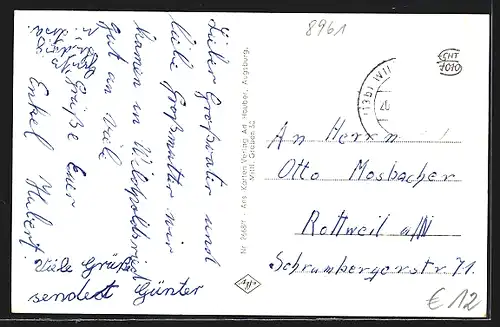 8961
Lieber Großvater und
liebe Großmutter wir
kamen in Wilopoldsried
gut an viele
Grüße Euer
Enkel Hubert.
Viele Grüße
sendest Günter
Nr. 9968/1 - Ans. Karten Verlag Art. Hauber, Augsburg,
Mittl. Graben 32
An Herrn
Otto Mosbacher
Rottweil a/N
Schrambergerstr 71.
€ 12